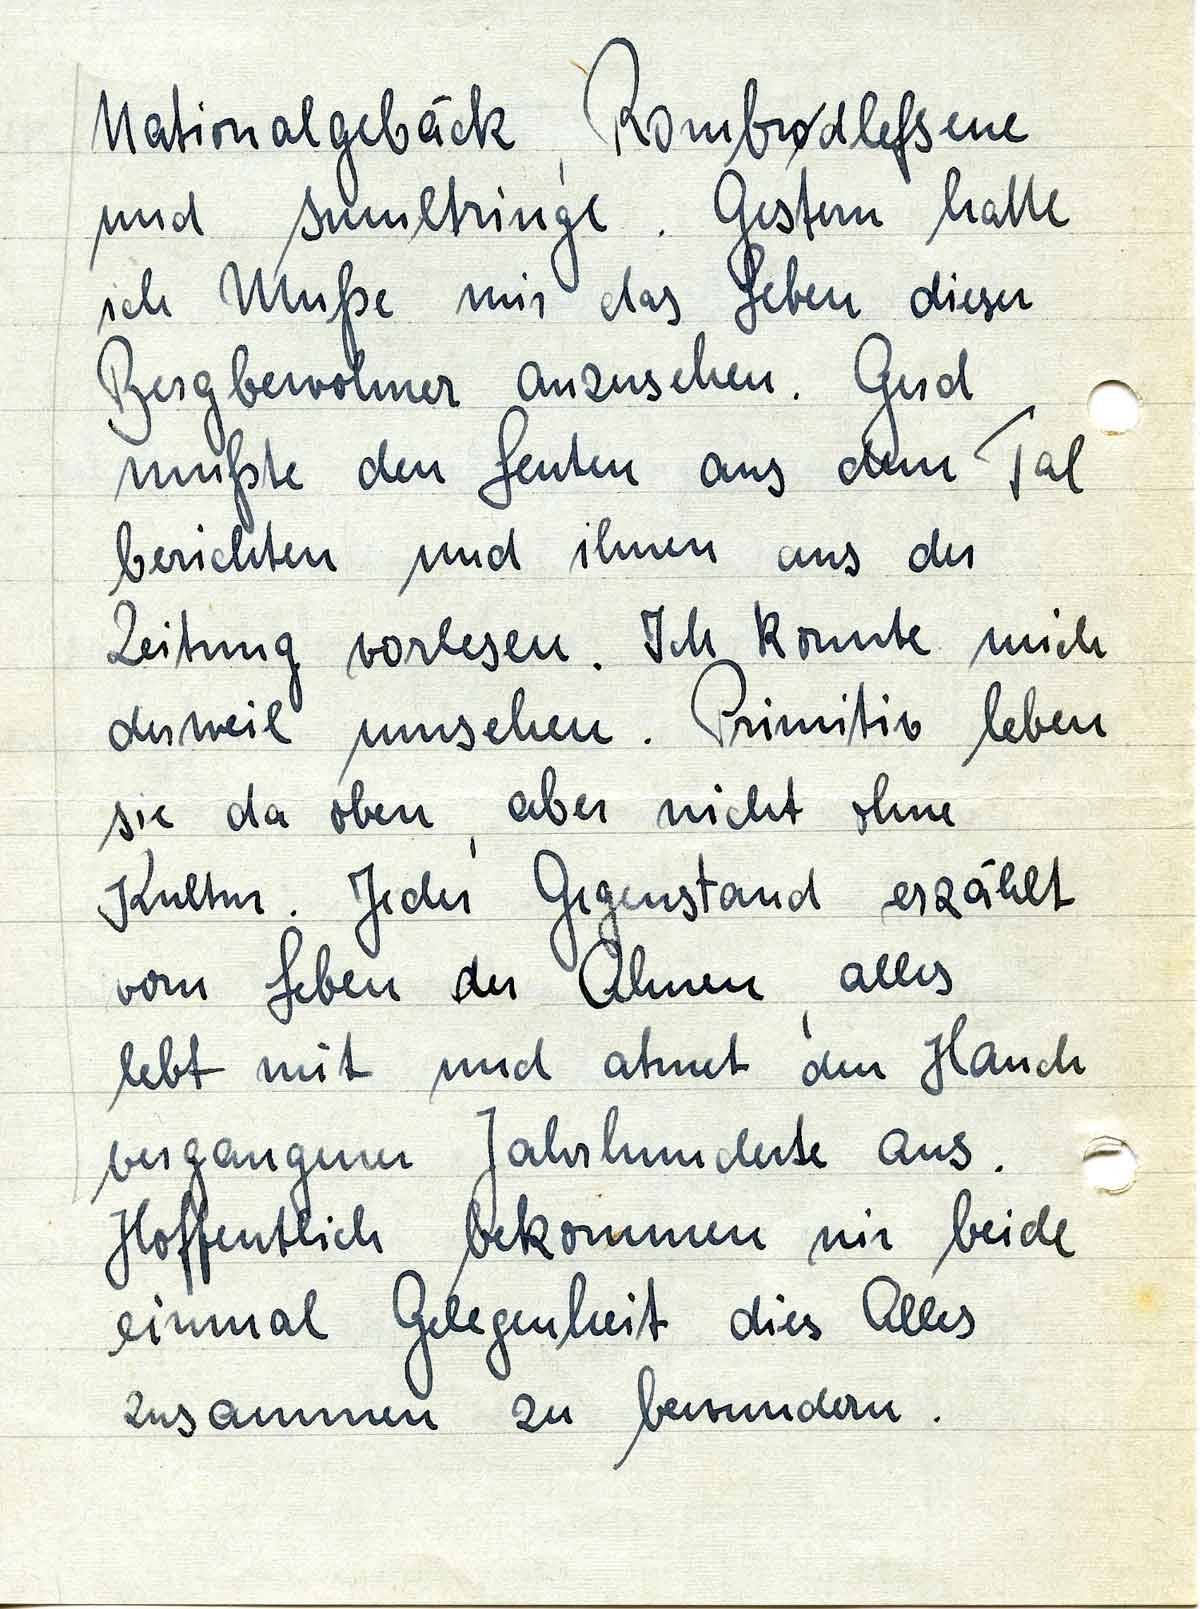 Nationalgebäck, Rombrødlefsene
und smultringe. Gestern hatte
ich Muße mir das Leben dieser
Bergbewohner anzusehen. Gerd
mußte den Leuten aus dem Tal
berichten und ihnen aus der
Zeitung vorlesen. Ich konnte mich
derweil umsehen. Primitiv leben
sie da oben, aber nicht ohne
Kultur. Jeder Gegenstand erzählt
vom Leben der Ahnen, alles
lebt mit und atmet den Hauch
vergangener Jahrhunderte aus.
Hoffentlich bekommen wir beide
einmal Gelegenheit dies Alles
zusammen zu bewundern.